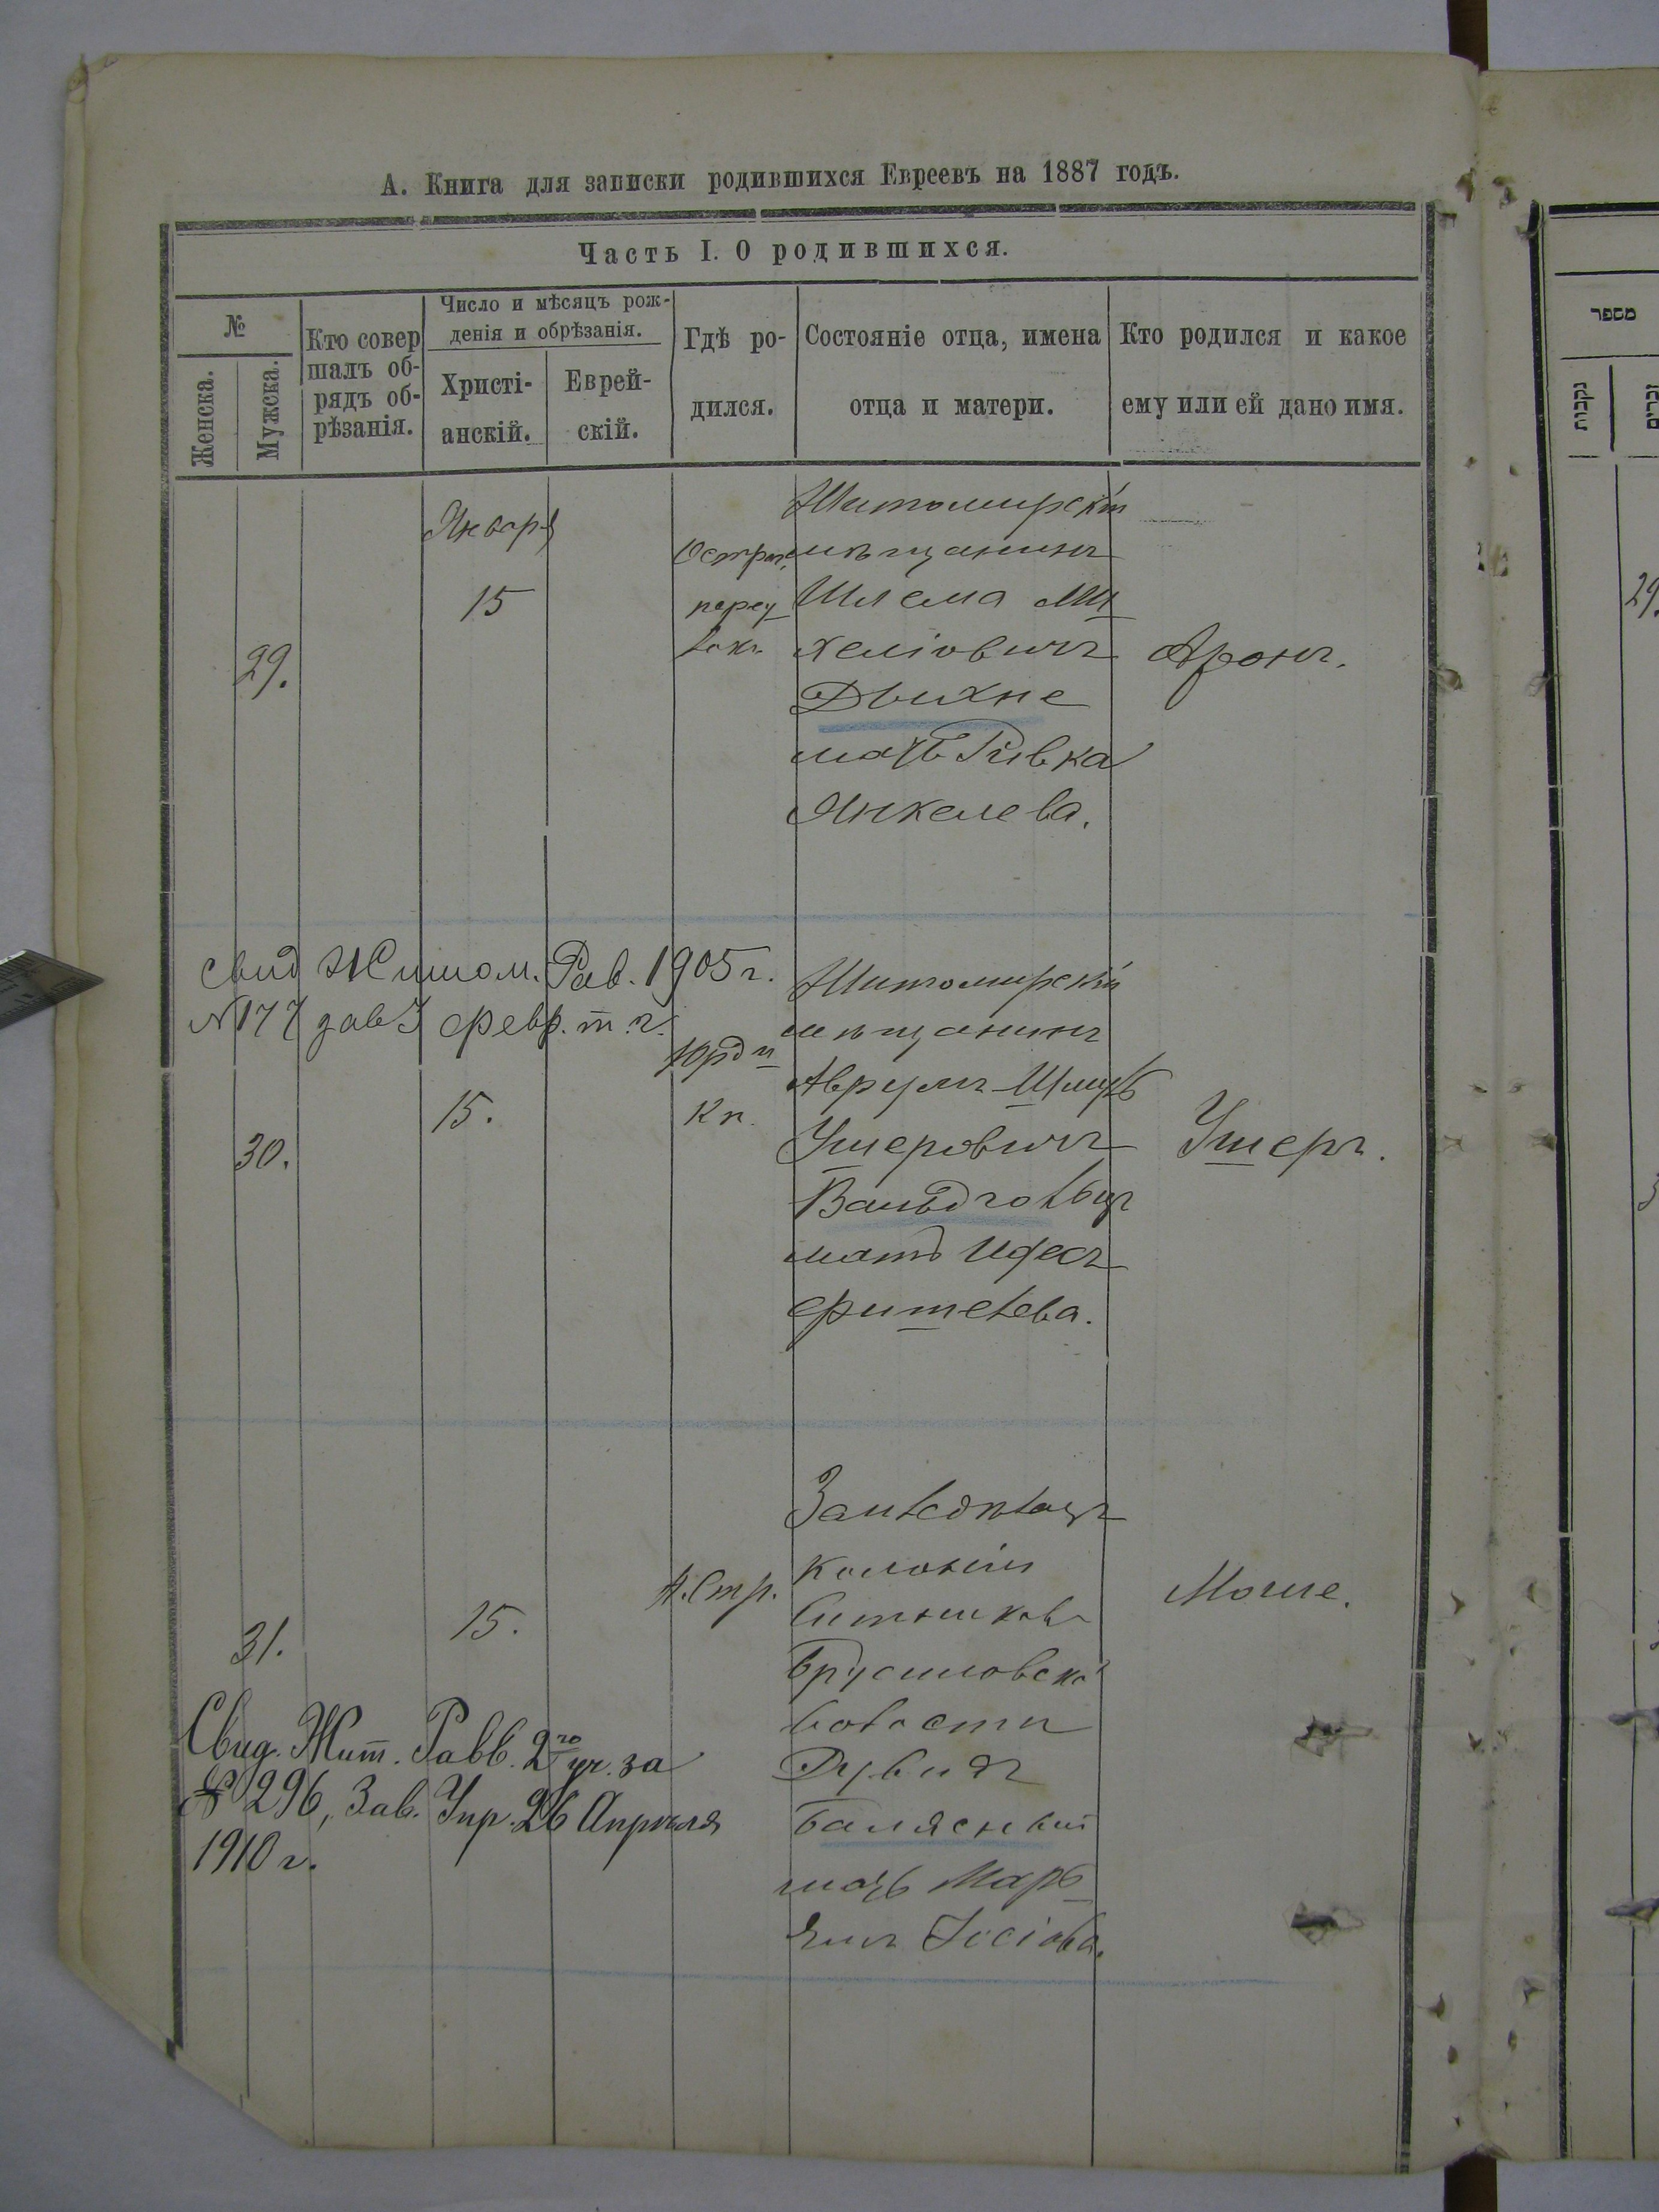 А. Книга для записки родившихся Евреевъ на 1887 годъ.
Часть I. О родившихся.
№
Женска.
Мужска.
Кто совер
шалъ об-
рядъ об-
рѣзанія.
Число и мѣсяцъ рож-
денія и обрѣзанія.
Христі-
анскій.
Еврей-
скій.
Гдѣ ро-
дился.
Состояніе отца, имена
отца и матери.
Кто родился и какое
ему или ей дано имя.
29.
Января
15
переу
Житомирскій
мѣщанинъ
Шлема Ми
хеліовичъ
Двихне
мать Ривка
Янкелева.
Аронъ.
Свид Житом. Рав. 1905 г.
№ 177 февр. т. г.
30.
15.
Житомирскій
мѣщанинъ
Аврумъ-Шмуль
Ушеровичъ
Вальдгольцъ
мать
Фишелева.
Ушеръ.
31.
15.
Землѣдѣлецъ
колоніи
Брусиловской
волости
Рувинъ
Балясный
мать Марь
ямъ Іосіова.
Моше.
Свид. Жит. Равв. 2го уч. за
№ 296, Зав. Упр. 26 Апрѣля
1910 г.
מספר
נקבות
זכרים
29.
3